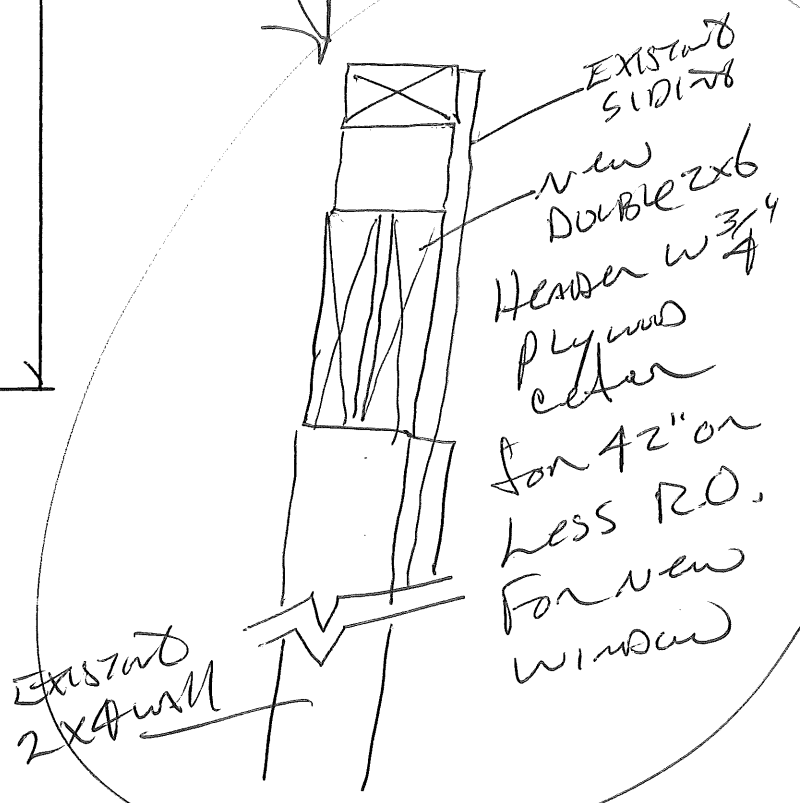 EXISTING
SIDING
New
DOUBLE 2x6
Header W 3/4"
Plywood
center
for 42" or
Less R.O.
For New
Window
EXISTING
2x4 wall